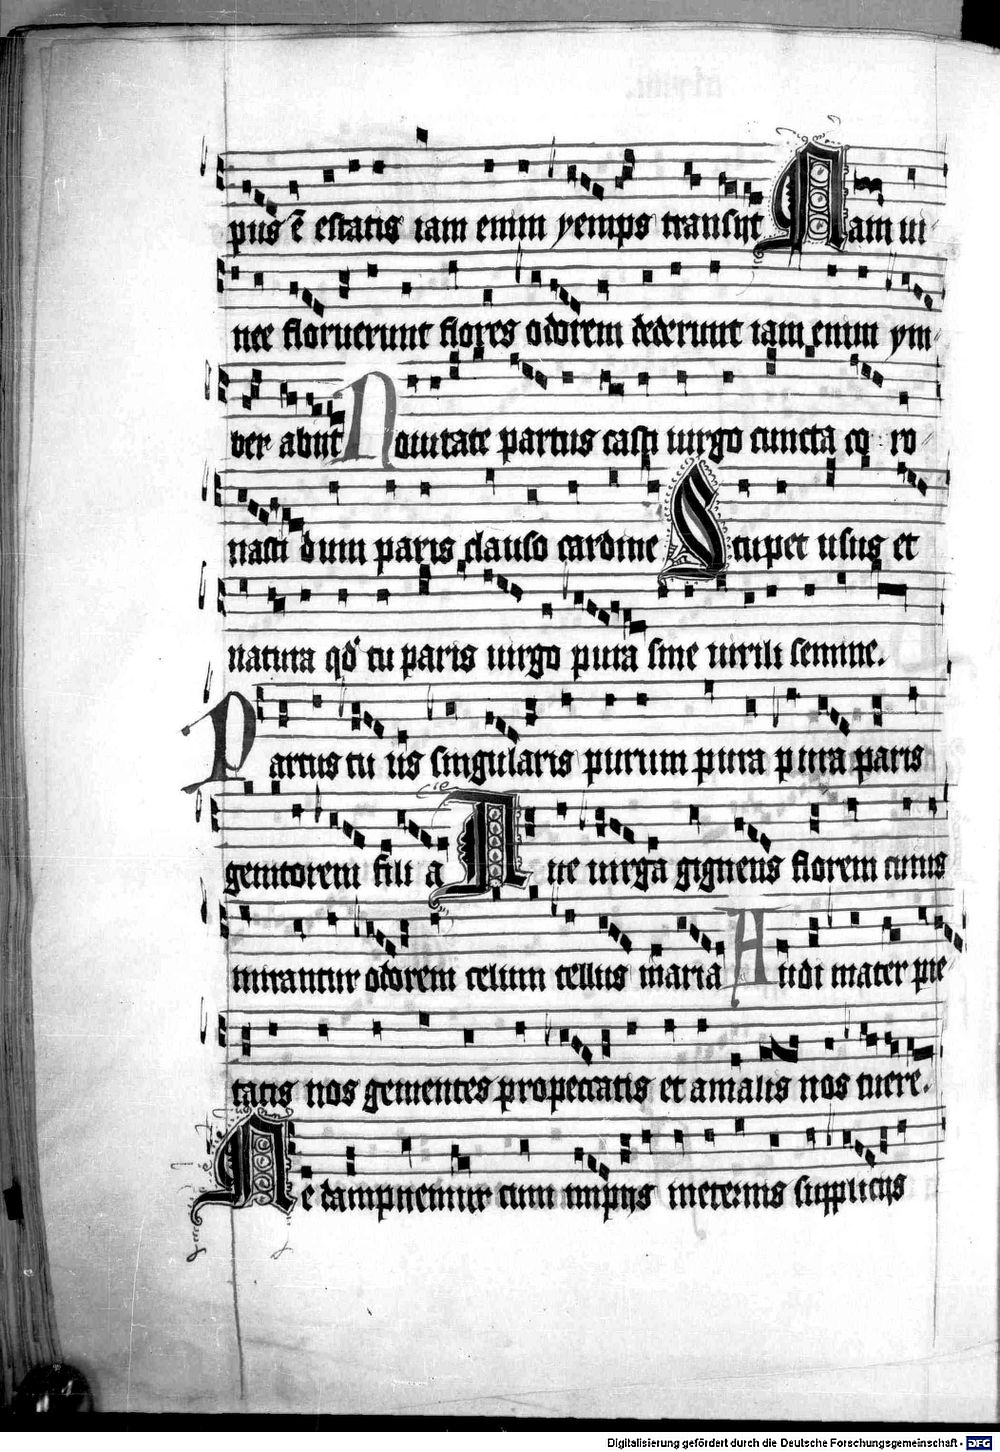 pus ē estatis iam enim yemps transijt Iam ui
nee floruerunt flores odorem dederunt iam enim ym
ber abijt Nouitate partus casti uirgo cuncta co ro
nasti dum paris clauso cardine Stupet usus et
natura qd tu paris uirgo pura sine uirili semine.
Partus tu us singularis purum pura pura paris
genitorem fili a Aue uirga gignens florem cuius
mirantur odorem celum tellus maria Audi mater pie
tatis nos gementes propeccatis et amalis nos tuere.
Ne dampnemur cum impijs ineternis supplicijs
Digitalisierung gefördert durch die Deutsche Forschungsgemeinschaft - DFG